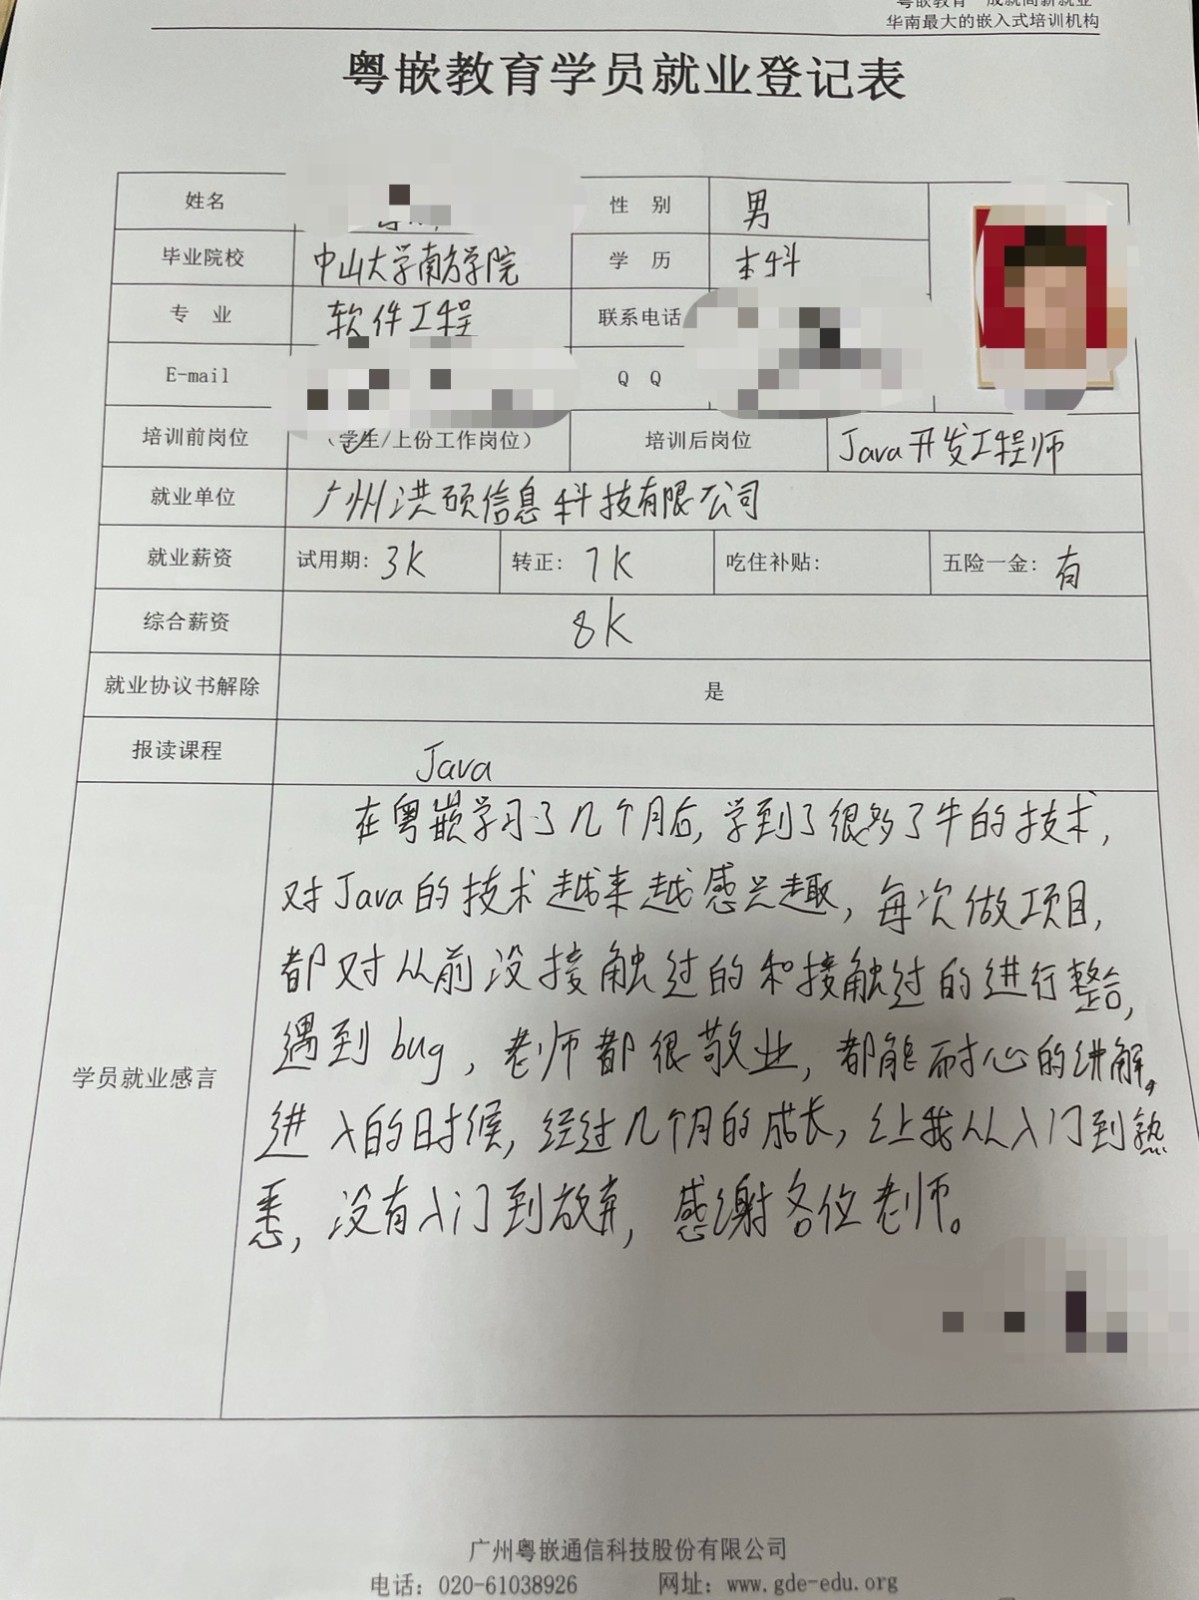 粤嵌教育 成就高薪就业
华南最大的嵌入式培训机构
粤嵌教育学员就业登记表
姓名 性 别 男
毕业院校 中山大学南方学院 学 历 本科
专 业 软件工程 联系电话
E-mail Q Q
培训前岗位 (学生/上份工作岗位) 培训后岗位 Java开发工程师
就业单位 广州洪硕信息科技有限公司
就业薪资 试用期: 3K 转正: 7K 吃住补贴: 五险一金: 有
综合薪资 8K
就业协议书解除 是
报读课程 Java
在粤嵌学习了几个月后,学到了很多了牛的技术,
对Java的技术越来越感兴趣,每次做项目,
都对从前没接触过的和接触过的进行整合,
遇到bug,老师都很敬业,都能耐心的讲解。
学员就业感言
进入的时候,经过几个月的成长,让我从入门到熟
悉,没有入门到放弃,感谢各位老师。
广州粤嵌通信科技股份有限公司
电话: 020-61038926 网址: www.gde-edu.org